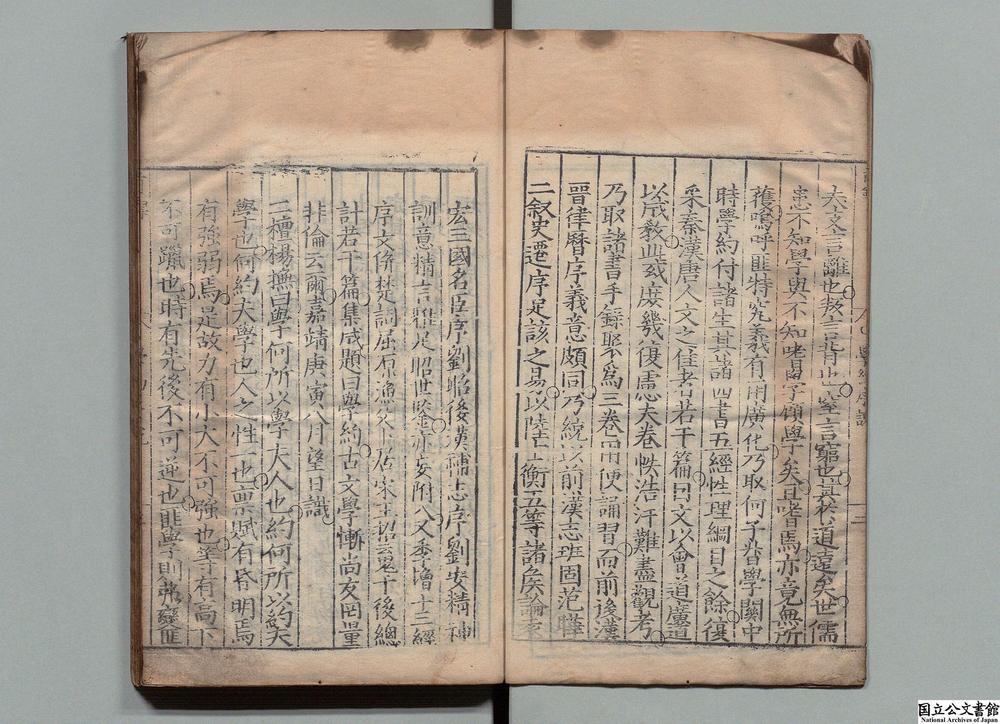 夫文言離也放言肯也窒言窮也其於道遠矣世儒
患不知學與不知嗜學領學矣且嗜焉亦竟無所
獲嗚呼匪特究義有用廣化乃取何子昔學關中
時學約付諸生其諸四書五經性理綱目之餘復
采秦漢唐人文之佳者若干篇曰文以會道塵道
以咸敎此或庶幾復慮夫卷帙浩汗難盡觀考
乃取諸書手錄聚爲三卷而便誦習而前後漢
晉律曆序義意頗同乃統以前漢志班固范曄
二叙史遷序足該之易以陸士衡五等諸侯論袁
宏三國名臣序劉昭後漢補志序劉安精神
訓意精言雅足昭世鑒亦妄附入又季增十三經
序文倂楚詞屈原漁父卜居宋玉招䰟于後總
計若干篇集咸題曰學約古文學慚尚友罔量
非倫云爾嘉靖庚寅八月望日識
三檀楊撫曰學何所以學夫人也約何所以約夫
學也何約夫學也人之性一也禀賦有昏明焉
有強弱焉是故力有小大不可強也等有高下
不可躐也時有先後不可逆也匪學則弗變匪
国立公文書館
National Archives of Japan